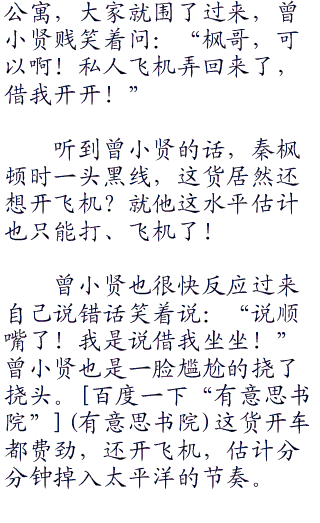 公寓，大家就围了过来，曾
小贤贱笑着问：“枫哥，可
以啊！私人飞机弄回来了，
借我开开！”
听到曾小贤的话，秦枫
顿时一头黑线，这货居然还
想开飞机？就他这水平估计
也只能打、飞机了！
曾小贤也很快反应过来
自己说错话笑着说：“说顺
嘴了！我是说借我坐坐！”
曾小贤也是一脸尴尬的挠了
挠头。[百度一下“有意思书
院”](有意思书院)这货开车
都费劲，还开飞机，估计分
分钟掉入太平洋的节奏。